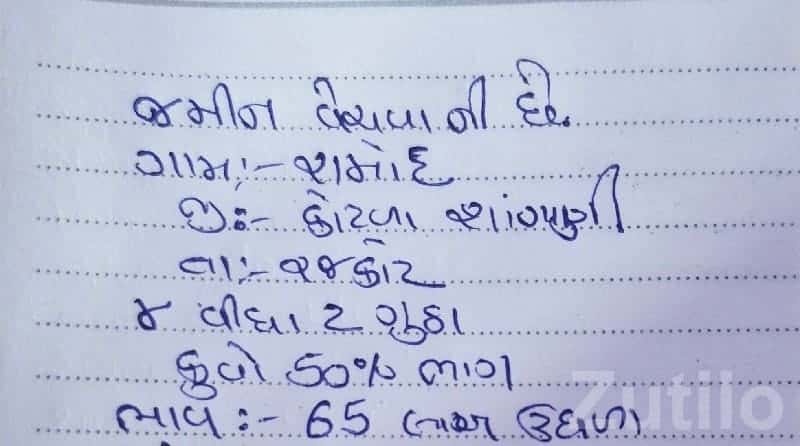 જમીન વેચવાની છે.
ગામ:- રામોદ
જી:- કોટડા સાંગાણી
તા:- રાજકોટ
૪ વીઘા 2 ગુંઠા
કુવો 50% ભાગ
ભાવ:- 65 લાખ ઉધળા
Zutilo